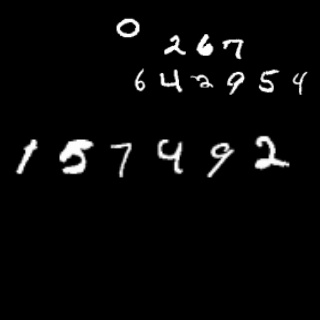 0
267
642954
157492